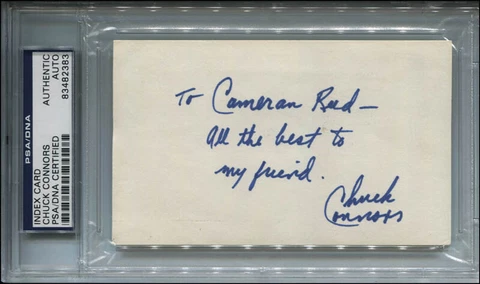 PSA/DNA
INDEX CARD
CHUCK CONNORS
PSA/DNA CERTIFIED
AUTHENTIC
AUTO
83482383
To Cameran Reed—
All the best to
my friend.
Chuck
Connors